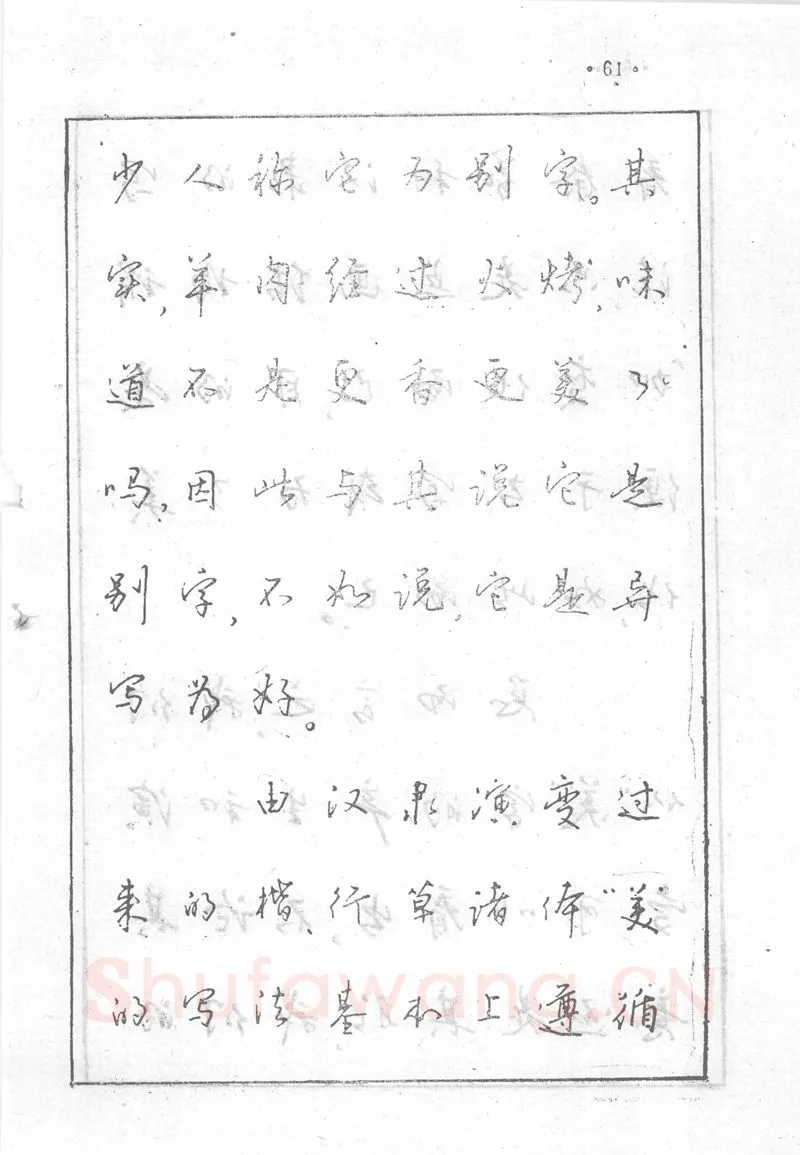 ·61·
少人称它为别字。其
实,羊肉经过火烤,味
道不是更香更美了
吗,因此与其说它是
别字,不如说它是异
写为好。
由汉隶演变过
来的楷、行草诸体“美”
的写法基本上遵循
Shufawang.CN